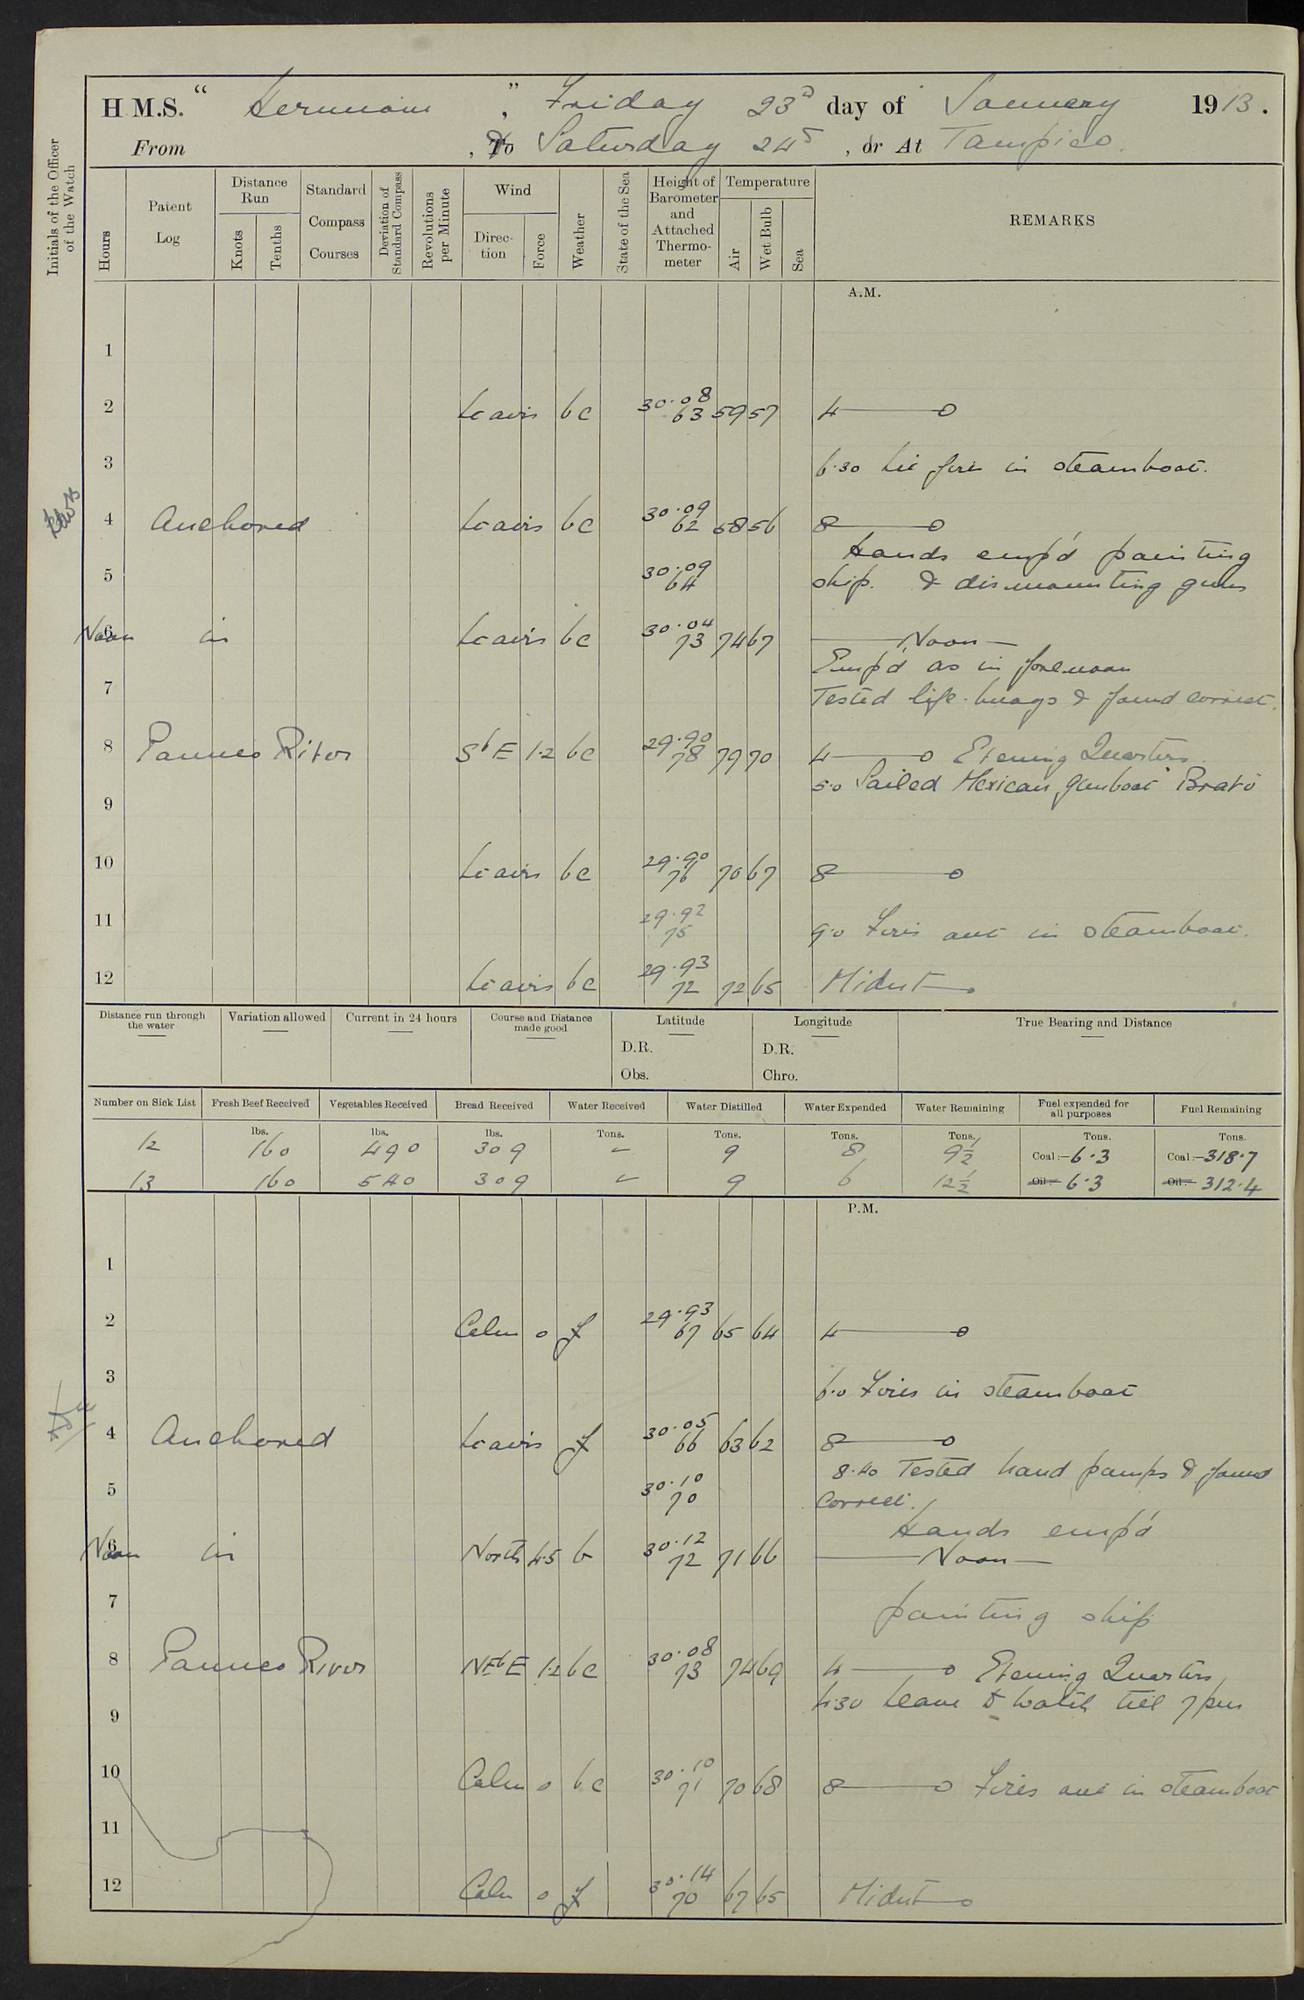 H.M.S. " Hermione ", Friday 23d day of January 1913.
From , To & Saturday 24th , or At Tampico.
Initials of the Officer of the Watch
Hours
Patent Log
Distance Run
Knots
Tenths
Standard Compass Courses
Deviation of Standard Compass
Revolutions per Minute
Wind
Direction
Force
Weather
State of the Sea
Height of Barometer and Attached Thermometer
Temperature
Air
Wet Bulb
Sea
REMARKS
A.M.
1
2 Lt airs bc 30.08 63 59 57 4
3 6.30 Lit fires in steamboat.
4 Anchored Lt airs bc 30.09 62 58 56 8
Hands emp'd painting
5 30.09 64 ship. & dismounting guns
6 Noon in Lt airs bc 30.04 73 74 67 Noon
Emp'd as in forenoon
7 Tested life-buoys & found correct.
8 Panuco River SbE 1.2 bc 29.90 78 79 70 4 Evening Quarters.
5.0 Sailed Mexican gunboat "Bravo"
9
10 Lt airs bc 29.90 76 70 67 8
11 29.92 75 9.0 Fires out in steamboat.
12 Lt airs bc 29.93 72 72 65 Midnt
Distance run through the water
Variation allowed
Current in 24 hours
Course and Distance made good
Latitude
D.R.
Obs.
Longitude
D.R.
Chro.
True Bearing and Distance
Number on Sick List Fresh Beef Received Vegetables Received Bread Received Water Received Water Distilled Water Expended Water Remaining Fuel expended for all purposes Fuel Remaining
lbs. lbs. lbs. Tons. Tons. Tons. Tons. Tons. Tons.
12 160 490 309 - 9 8 9½ Coal:-6.3 Coal:-318.7
13 160 540 309 - 9 6 12½ Oil:- 6.3 Oil:- 312.4
P.M.
1
2 Calm o f 29.93 67 65 64 4
3 6.0 Fires in steamboat
4 Anchored Lt airs f 30.05 66 63 62 8
8.40 Tested hand pumps & found
5 30.10 70 correct.
Hands emp'd
6 Noon in North 4.5 b 30.12 72 71 66 Noon
7 painting ship
8 Panuco River NEbE 1.2 bc 30.08 73 74 69 4 Evening Quarters
4.30 Leave to watch till 7 pm
9
10 Calm o bc 30.10 71 70 68 8 Fires out in steamboat
11
12 Calm o f 30.14 70 67 65 Midnt